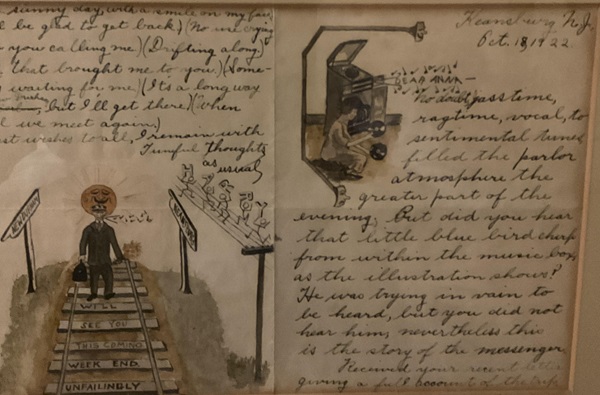 sunny day, with a smile on my face
l be glad to get back) (No use crying
you calling me) (Drifting along)
that brought me to you) (Some-
waiting for me) (Its a long way
but I'll get there) (When
l we meet again)
st wishes to all, I remain with
Tuneful thoughts
as usual
ROY
WILL
SEE YOU
THIS COMING
WEEK END
UNFAILINGLY
Keansburg N.J.
Oct. 18, 1922.
DEAR ANNA —
No doubt pass time,
ragtime, vocal, to
sentimental tunes
filled the parlor
atmosphere the
greater part of the
evening, but did you hear
that little blue bird chirp
from within the music box
as the illustration shows?
He was trying in vain to
be heard, but you did not
hear him, nevertheless this
is the story of the messenger.
Received your recent letter
giving a full account of the